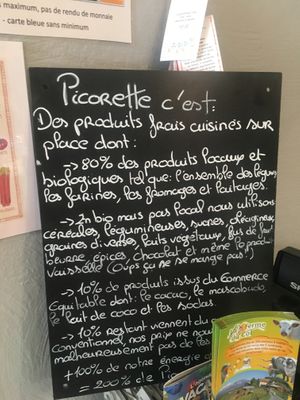 maximum, pas de rendu de monnaie
- carte bleu sans minimum
Picorette c'est:
Des produits frais cuisinés sur
place dont:
→ 80% des produits locaux et
biologiques tel que: l'ensemble des légumes
les farines, les fromages et laitages.
→ En bio mais pas local nous utilisons
céréales, légumineuses, sucres, oléagineux,
graines diverses, laits végétaux, jus de fruit
beurre, épices, chocolat et même le produit
vaisselle (oups ça ne se mange pas!)
→ 10% de produits issus du commerce
équitable dont: le cacao, le mascobado,
le lait de coco et les sodas
→ 10% restant viennent du
conventionnel, nos prix ne nous
malheureusement pas de
+ 100% de notre énergie
= 200% de Pico